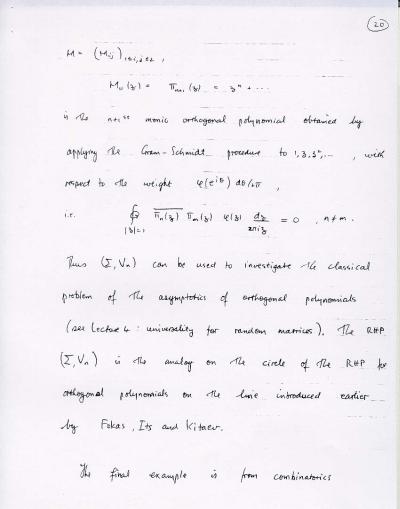 (20)
M = (Mij)1≤i,j≤2 ,
M11(z) = πn(z) = z^n + ···
is the n+1st monic orthogonal polynomial obtained by
applying the Gram-Schmidt procedure to 1, z, z², ··· , with
respect to the weight φ(e^iθ) dθ/2π ,
i.e. ∮|z|=1 \overline{πn(z)} πm(z) φ(z) dz/2πiz = 0 , n ≠ m .
Thus (Σ, Vn) can be used to investigate the classical
problem of the asymptotics of orthogonal polynomials
(see Lecture 4 : universality for random matrices). The RHP
(Σ, Vn) is the analog on the circle of the RHP for
orthogonal polynomials on the line introduced earlier
by Fokas, Its and Kitaev.
The final example is from combinatorics